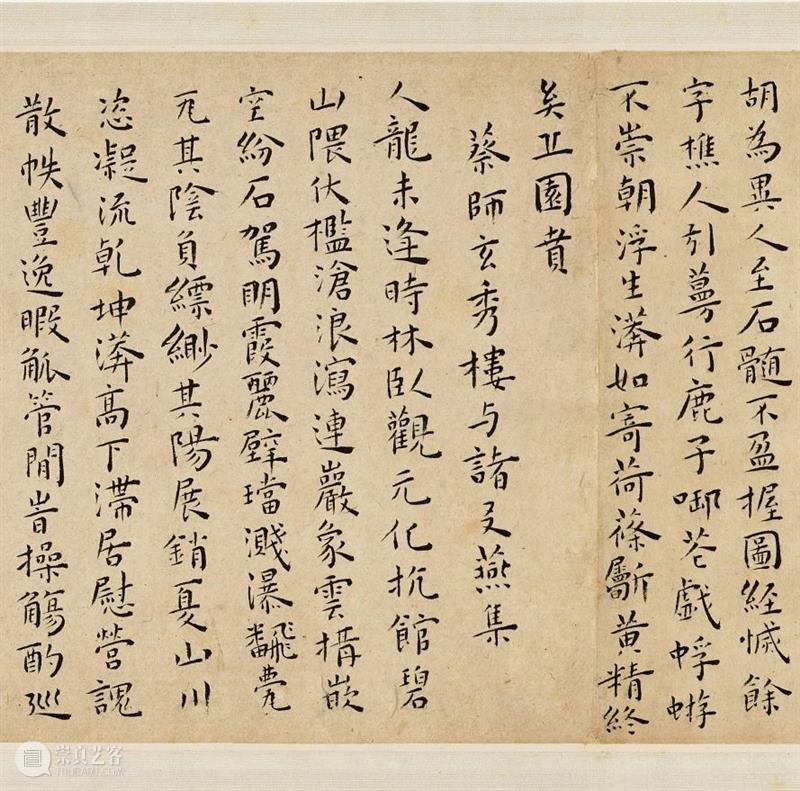 胡為異人至石髓不盈握圖經惐餘
字樵人引蕚行鹿子啣苍戲蜉蝣
不崇朝浮生漭如寄荷蓧斸黃精終
矣丘園賁
蔡師玄秀樓与諸友燕集
人龍未逢時林臥觀元化抗館碧
山隈伏檻滄浪瀉連巖象雲構嵌
空紛石駕明霞麗壁璫濺瀑飜甍
瓦其陰負縹緲其陽展銷夏山川
恣凝流乾坤漭高下滯居慰營魂
散帙豐逸暇觚管閒旹操觴酌巡
崇真艺客
TRUEART.COM